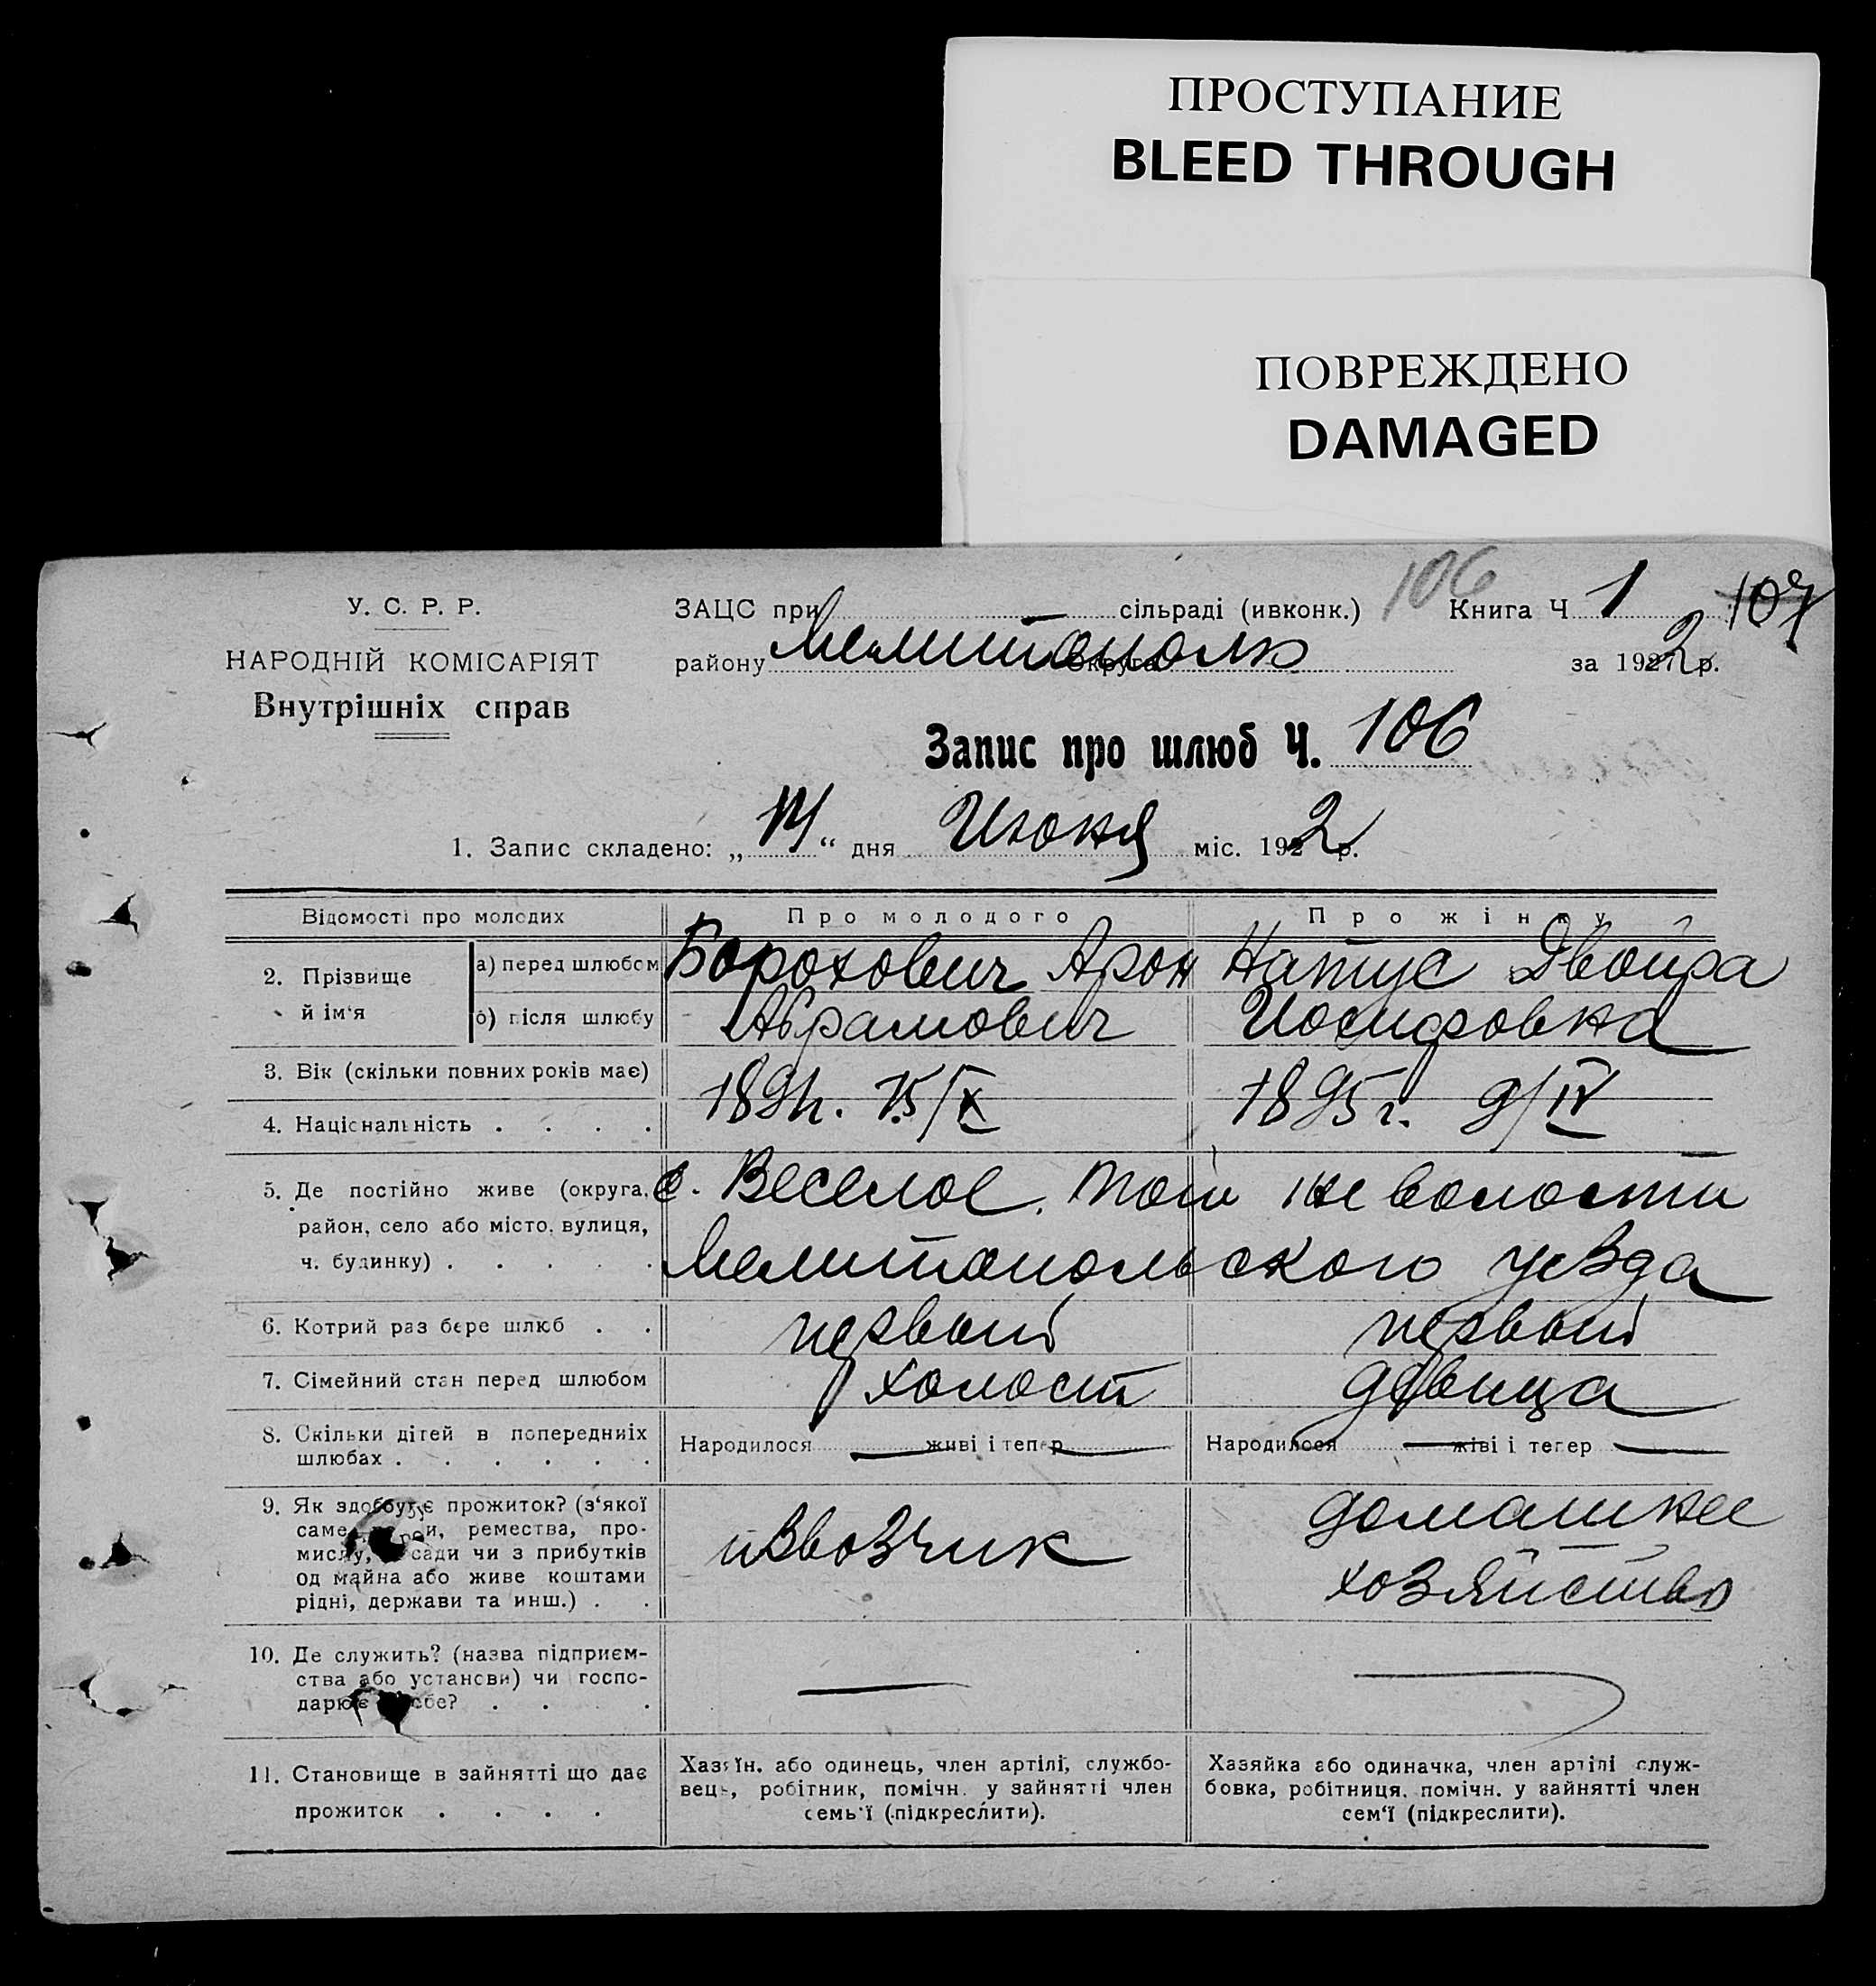 ПРОСТУПАНИЕ
BLEED THROUGH
ПОВРЕЖДЕНО
DAMAGED
106
107
У. С. Р. Р.
НАРОДНІЙ КОМІСАРІЯТ
Внутрішніх справ
ЗАЦС при сільраді (ивконк.) Книга Ч 1
району Мелитополь Округа за 1922 р.
Запис про шлюб Ч. 106
1. Запис складено: „14“ дня Июня міс. 1922 р.
Відомості про молодих Про молодого Про жінку
2. Прізвище й ім‘я а) перед шлюбом Борохович Арон Натус Двойра
б) після шлюбу Абрамович Иосифовна
3. Вік (скільки повних років має)
4. Національність . . . .
15/X 1895 г. 9/IV
5. Де постійно живе (округа, с. Веселое. той же волости
район, село або місто, вулиця,
ч. будинку) . . . . . Мелитопольского уезда
6. Котрий раз бере шлюб . . первый первый
7. Сімейний стан перед шлюбом холост девица
8. Скільки дітей в попередниіх Народилося — живі і тепер — Народилося — жіві і тепер —
шлюбах . . . . . .
9. Як здобуує прожиток? (з‘якої
саме и, ремества, про-
мислу, сади чи з прибутків
од майна або живе коштами
рідні, держави та инш.) . .
извозчик
домашнее
хозяйство
10. Де служить? (назва підприєм-
ства або установи) чи госпо-
дарює себе? . . . — —
11. Становище в зайнятті що дає
прожиток . . . .
Хазяїн, або одинець, член артілі, службо-
вець, робітник, помічн. у зайнятті член
семь‘ї (підкреслити).
Хазяйка або одиначка, член артілі служ-
бовка, робітниця, помічн. у зайнятті член
сем‘ї (підкреслити).